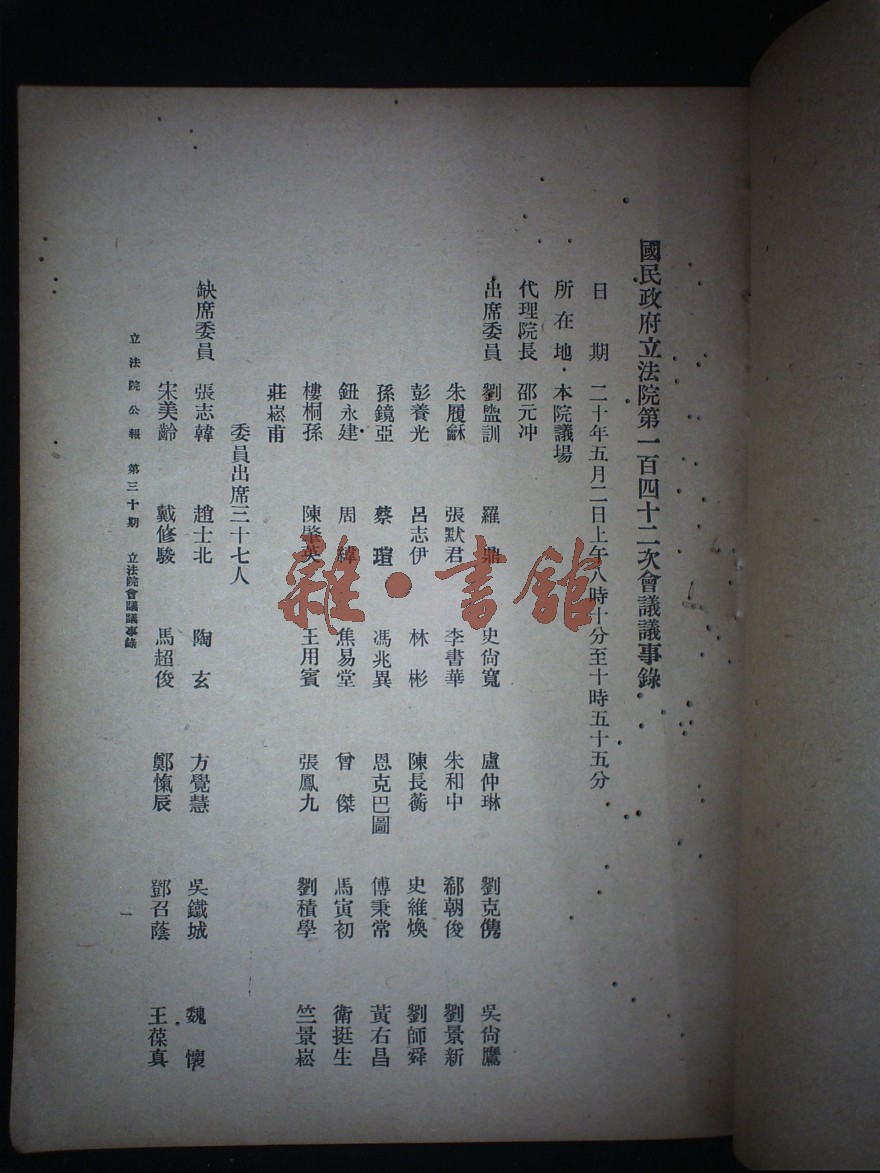 國民政府立法院第一百四十二次會議議事錄
日期 二十年五月二日上午八時十分至十時五十五分
所在地 本院議場
代理院長 邵元冲
出席委員 劉盥訓 羅鼎 史尙寬 盧仲琳 劉克儁 吳尙鷹
朱履龢 張默君 李書華 朱和中 郗朝俊 劉景新
彭養光 呂志伊 林彬 陳長蘅 史維煥 劉師舜
孫鏡亞 蔡瑄 馮兆異 恩克巴圖 傅秉常 黃右昌
鈕永建 周緯 焦易堂 曾傑 馬寅初 衛挺生
樓桐孫 陳肇英 王用賓 張鳳九 劉積學 竺景崧
莊崧甫
委員出席三十七人
缺席委員 張志韓 趙士北 陶玄 方覺慧 吳鐵城 魏懷
宋美齡 戴修駿 馬超俊 鄭愾辰 鄧召蔭 王葆真
立法院公報 第三十期 立法院會議議事錄
一
雜·書館